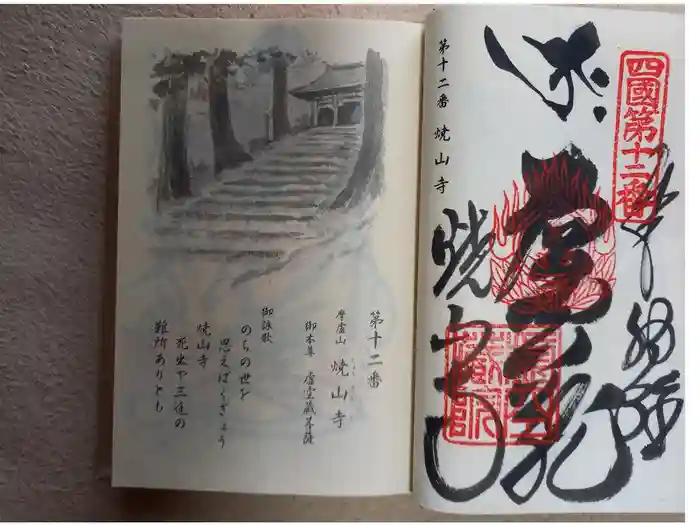 四國第十二番
奉納経
虚空蔵
焼山寺
第十二番 焼山寺
第十二番
摩盧山 焼山寺
御本尊 虚空蔵菩薩
御詠歌
のちの世を
思えばくぎょう
焼山寺
死出や三途の
難所ありとも